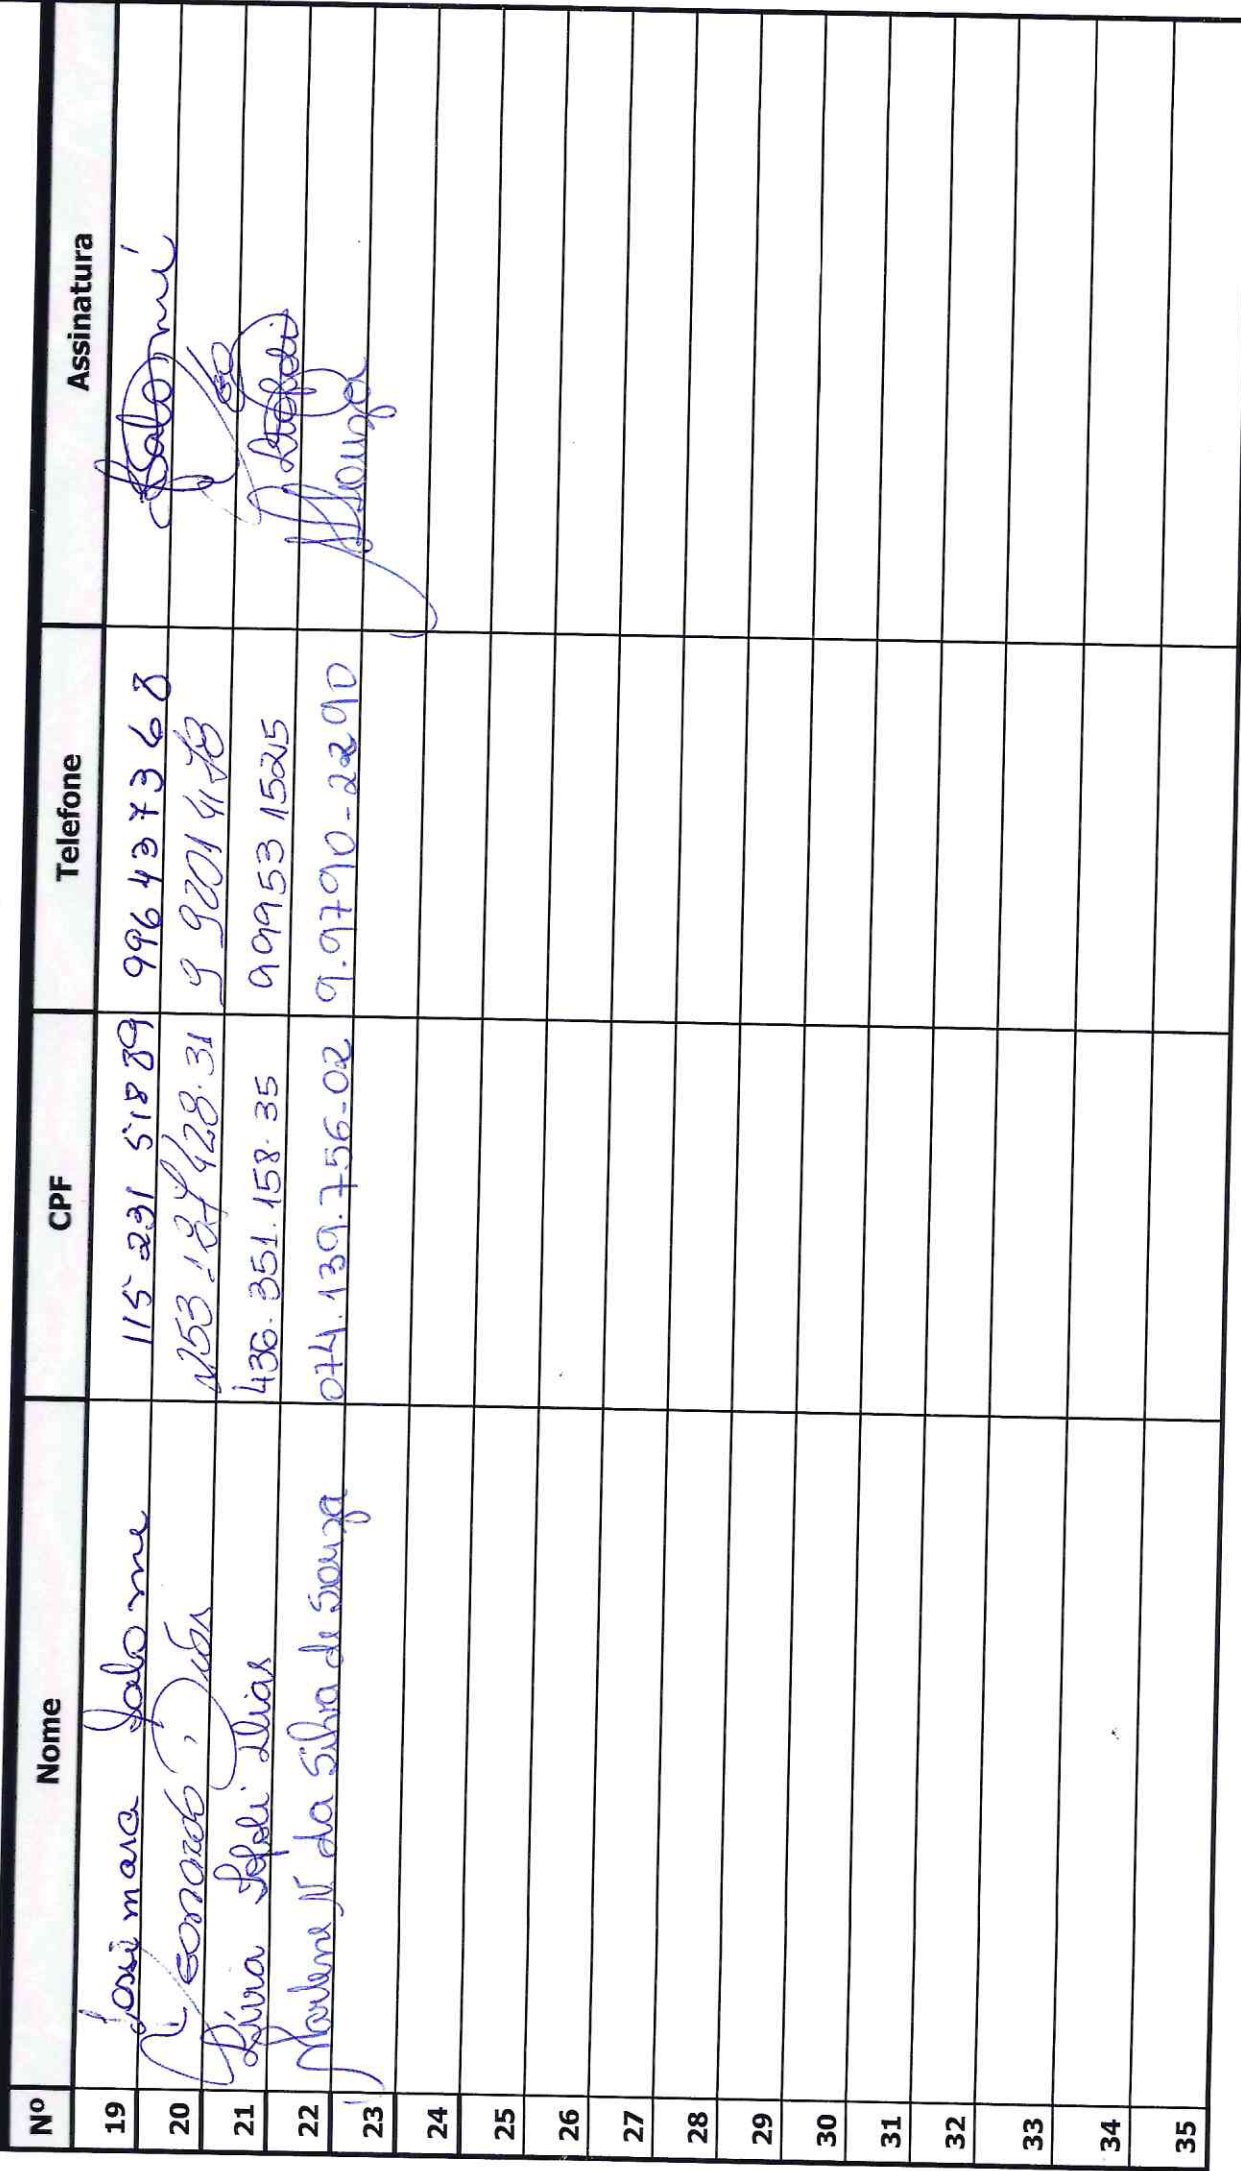 Nº Nome CPF Telefone Assinatura
19 Josimara Salome 115 231 518 89 996 437368 Salomé
20 Leonardo 428.31 9 9201
21 Lívia Stefoli Dias 436.351.158.35 999531525 Stefoli
22 Marlene N da Silva de Souza 074.139.756-02 9.9790-2290 Souza
23
24
25
26
27
28
29
30
31
32
33
34
35